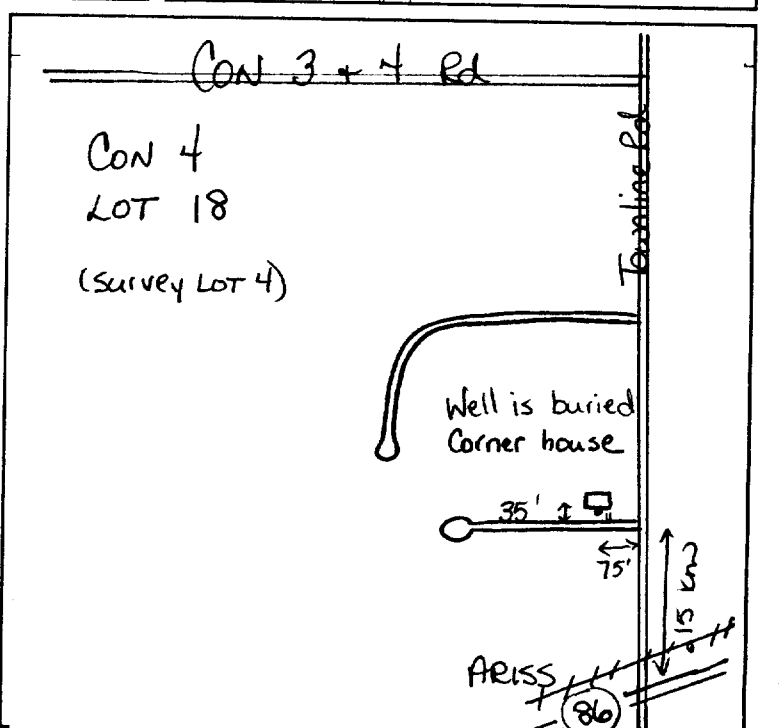 CON 3 + 4 Rd
CON 4
LOT 18
(Survey LOT 4)
Townline Rd
Well is buried
Corner house
35'
75'
.15 km
ARISS
86